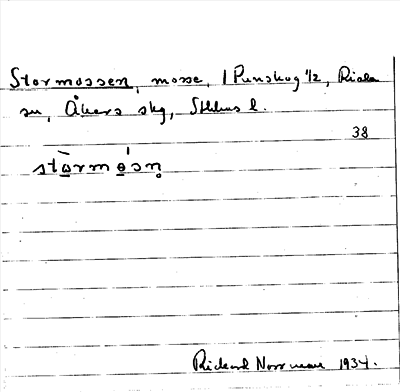 Stormossen, mosse, 1 Runskog 1/2, Riala
sn, Åkers skg, Sthlms l.
38
Richard Norrman 1934.